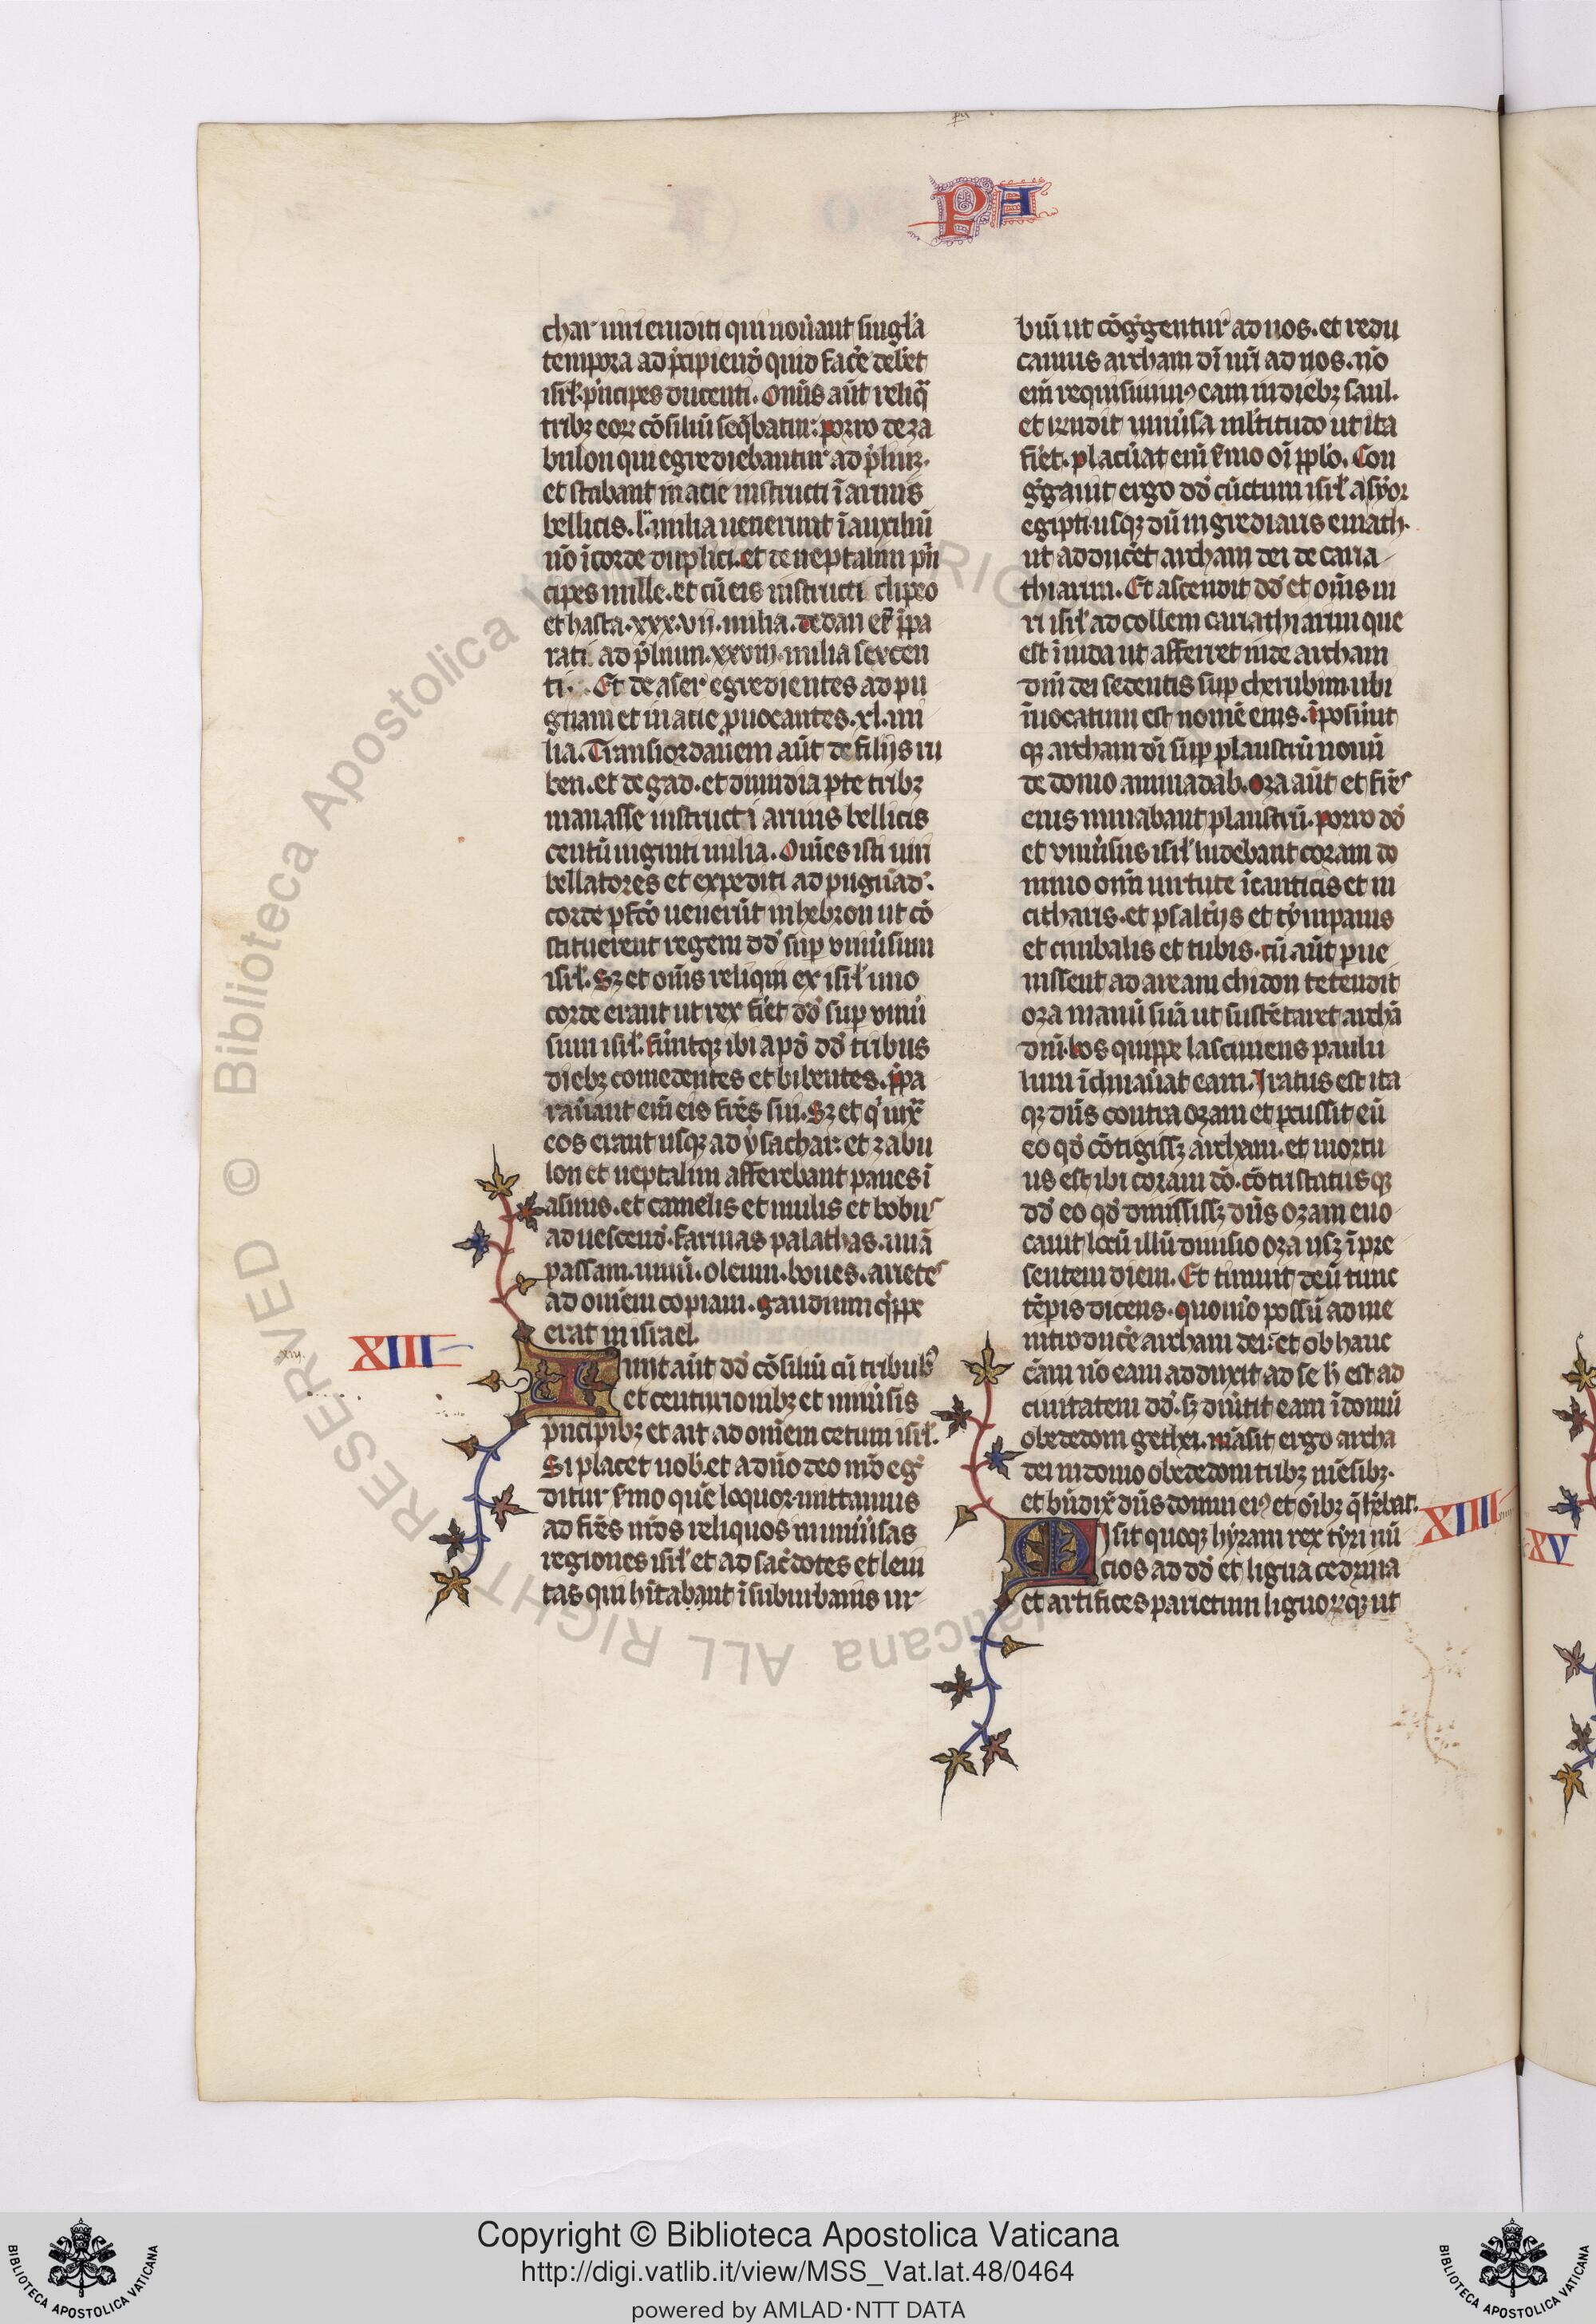 PA
char uiri eruditi qui nou̾ant singl'a
tempora ad p̾cipiend̾ quid fac̾e deb̾et
isrl̾. p̾ncipes ducenti. Om̄is aūt reliq̄
tribꝫ eoꝝ cōsiliū seq̄batur. porro de za
bulon qui egrediebantur ad p̄liuꝫ.
et stabant in acie instructi ī armis
bellicis. l. milia uenerunt ī auxiliū
nō ī corde duplici. et de neptalim pn̄
cipes mille. et cū eis instructi clipeo
et hasta. xxx. vii. milia. de dan et̄ p̄pa
rati ad p̄lium. xxviii. milia sexcen
ti. Et de aser egredientes ad pu
gnam et in acie ꝓuocantes. xl. mi
lia. Transiordanem aūt de filijs ru
ben. et de gad. et dimidia ꝑte tribꝫ
manasse instructi armis bellicis
centū uiginti milia. Om̄es isti uiri
bellatores et expediti ad pugnād̾.
corde ꝑfc̄o uenerūt in hebron ut cō
stituerent regem dd̾ suꝑ vniu̾sum
isrl̾. Sꝫ et om̄is reliqui ex isrl̾ uno
corde erant ut rex fi̾et dd̾ suꝑ vniu̾
sum isrl̾. fu̾untqꝫ ibi apd̾ dd̾ tribus
diebꝫ comedentes et bibentes. p̄pa
rau̾ant eni̅ eis fr̄es sui. Sꝫ et q̾ iux̄
eos erant usqꝫ ad ysachar. et zabu
lon et neptalim afferebant panes ī
asinis. et camelis et mulis et bobus
ad uescend̾. farinas palathas. uuā
passam. uinū. oleum. boues. arietes
ad om̄em copiam. gaudium q̾ppe
erat in israel.
XIII
xiii.
Iniit aūt dd̾ cōsiliū cū tribuis
et centurionibꝫ et uniu̾sis
p̾ncipibꝫ et ait ad om̄em cetum isrl̾.
Si placet uob̾. et a dn̄o deo nr̄o eg̾
ditur s̾mo quē loquor. mittamus
ad fr̄es nr̄os reliquos in uniu̾sas
regiones isrl̾ et ad sac̾dotes et leui
tas qui hītabant ī suburbanis ur-
biū ut cōg̾gentur ad nos. et redu
camus archam dī nr̄i ad nos. nō
eni̅ requisiuimꝰ eam in diebꝫ saul.
et rn̄dit uniu̾sa ml̾titudo ut ita
fi̾et. placu̾at eni̅ s̾mo oī pplo̾. Con
g̾gauit ergo dd̾ cūctum isrl̾ a syor
egipti. usqꝫ dū ingrediaris emath.
ut adduc̾et archam dei de caria-
thiarim. Et ascendit dd̾ et om̄is ui
ri isrl̾ ad collem cariathiarim que
est ī iuda ut afferret inde archam
dn̄i dei sedentis suꝑ cherubim. ubi
īuocatum est nomē eius. īposu̾ut
qꝫ archam dī suꝑ plaustrū nouū
de domo aminadab. oza aūt et fr̄es
eius minabant plaustrū. porro dd̾
et vniu̾sus isrl̾ ludebant coram do
mino om̄i uirtute ī canticis et in
citharis. et psaltijs et tympanis
et cimbalis et tubis. cū aūt ꝑue
nissent ad aream chidon tetendit
oza manū suā ut sustētaret archā
dn̄i. bos quippe lasciuiens paulu
lum īclinau̾at eam. Iratus est ita
qꝫ dn̄s contra ozam et ꝑcussit eū
eo qd̾ cōtigissꝫ archam. et mortu
us est ibi coram dō. cōtristatusqꝫ
dd̾ eo qd̾ diuisissꝫ dn̄s ozam euo
cauit locū illū diuisio oza usqꝫ ī pre
sentem diem. Et timuit deū tunc
tēpis dicens. quomo̾ possū ad me
introduc̾e archam dei. et ob hanc
cām nō eam adduxit ad se h̄ est ad
ciuitatem dd̾. sꝫ diu̾tit eam ī domū
obededom gethei. māsit ergo archa
dei in domo obededom tribꝫ mēsibꝫ.
et bn̄dix̄ dn̄s domui eiꝰ et oībꝫ q̄ hēbat.
XIIII
Misit quoqꝫ hyram rex tyri nū
cios ad dd̾ et ligna cedrina
et artifices parietum lignoꝝqꝫ ut
XV
Copyright © Biblioteca Apostolica Vaticana
http://digi.vatlib.it/view/MSS_Vat.lat.48/0464
powered by AMLAD·NTT DATA
BIBLIOTECA APOSTOLICA VATICANA
BIBLIOTECA APOSTOLICA VATICANA